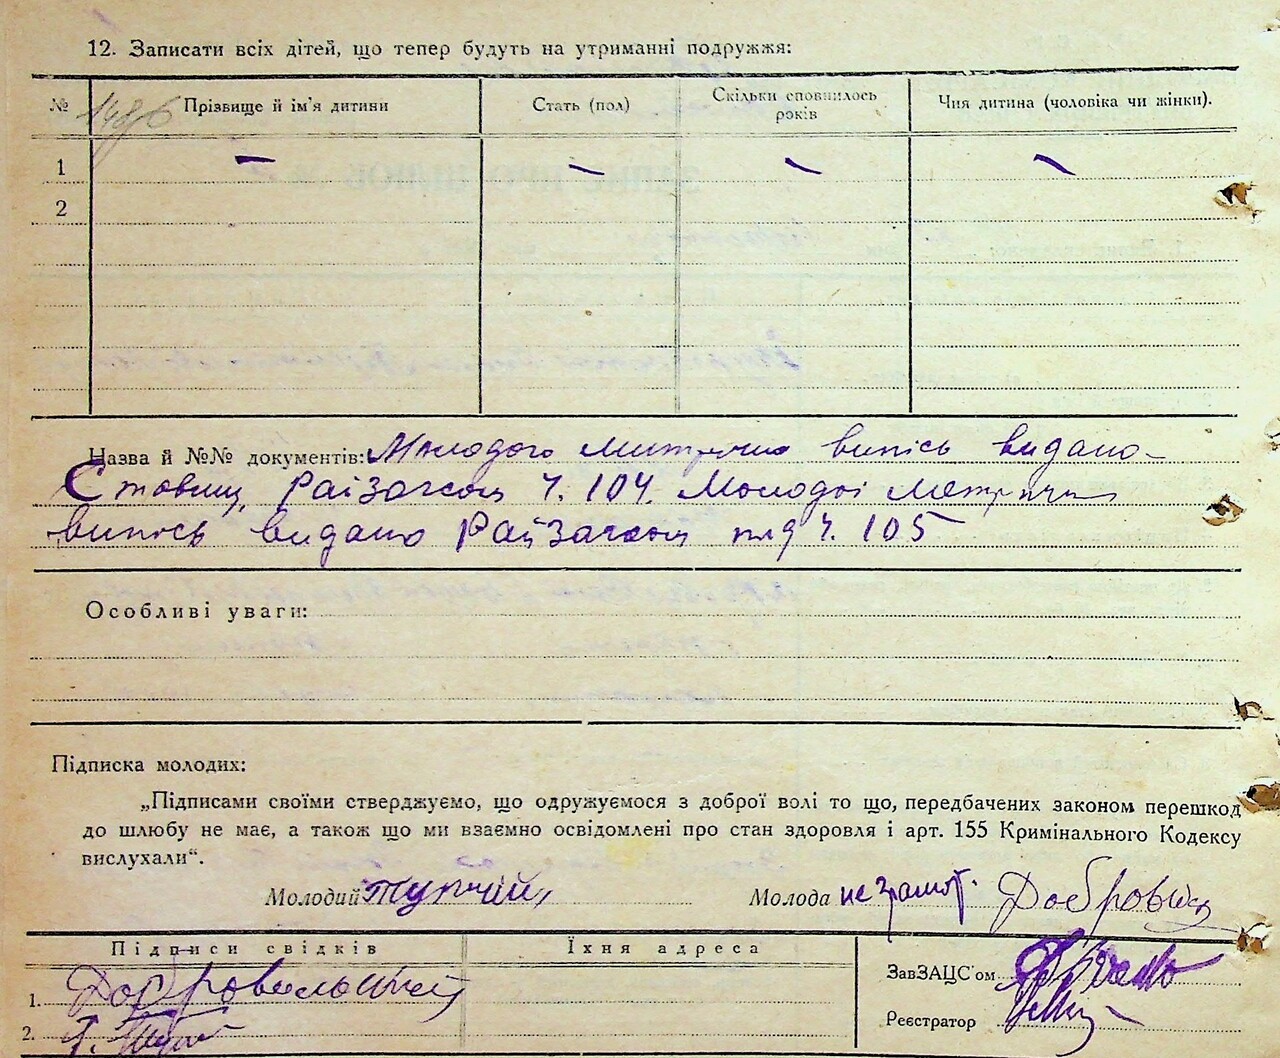 12. Записати всіх дітей, що тепер будуть на утриманні подружжя:
№ Прізвище й ім'я дитини Стать (пол) Скільки сповнилось років Чия дитина (чоловіка чи жінки).
1 — — — —
2
Назва й №№ документів: Молодого метрична випісь видано
Ставищ. Райзагсом Ч. 104. Молодої метрична
випісь видано Райзагсом під Ч. 105
Особливі уваги:
Підписка молодих:
„Підписами своїми стверджуємо, що одружуємося з доброї волі то що, передбачених законом перешкод
до шлюбу не має, а також що ми взаємно освідомлені про стан здоровля і арт. 155 Кримінального Кодексу
вислухали“.
Молодий Молода не грамот.
Підписи свідків Їхня адреса
ЗавЗАЦС'ом
1. Добровольський
Реєстратор
2.